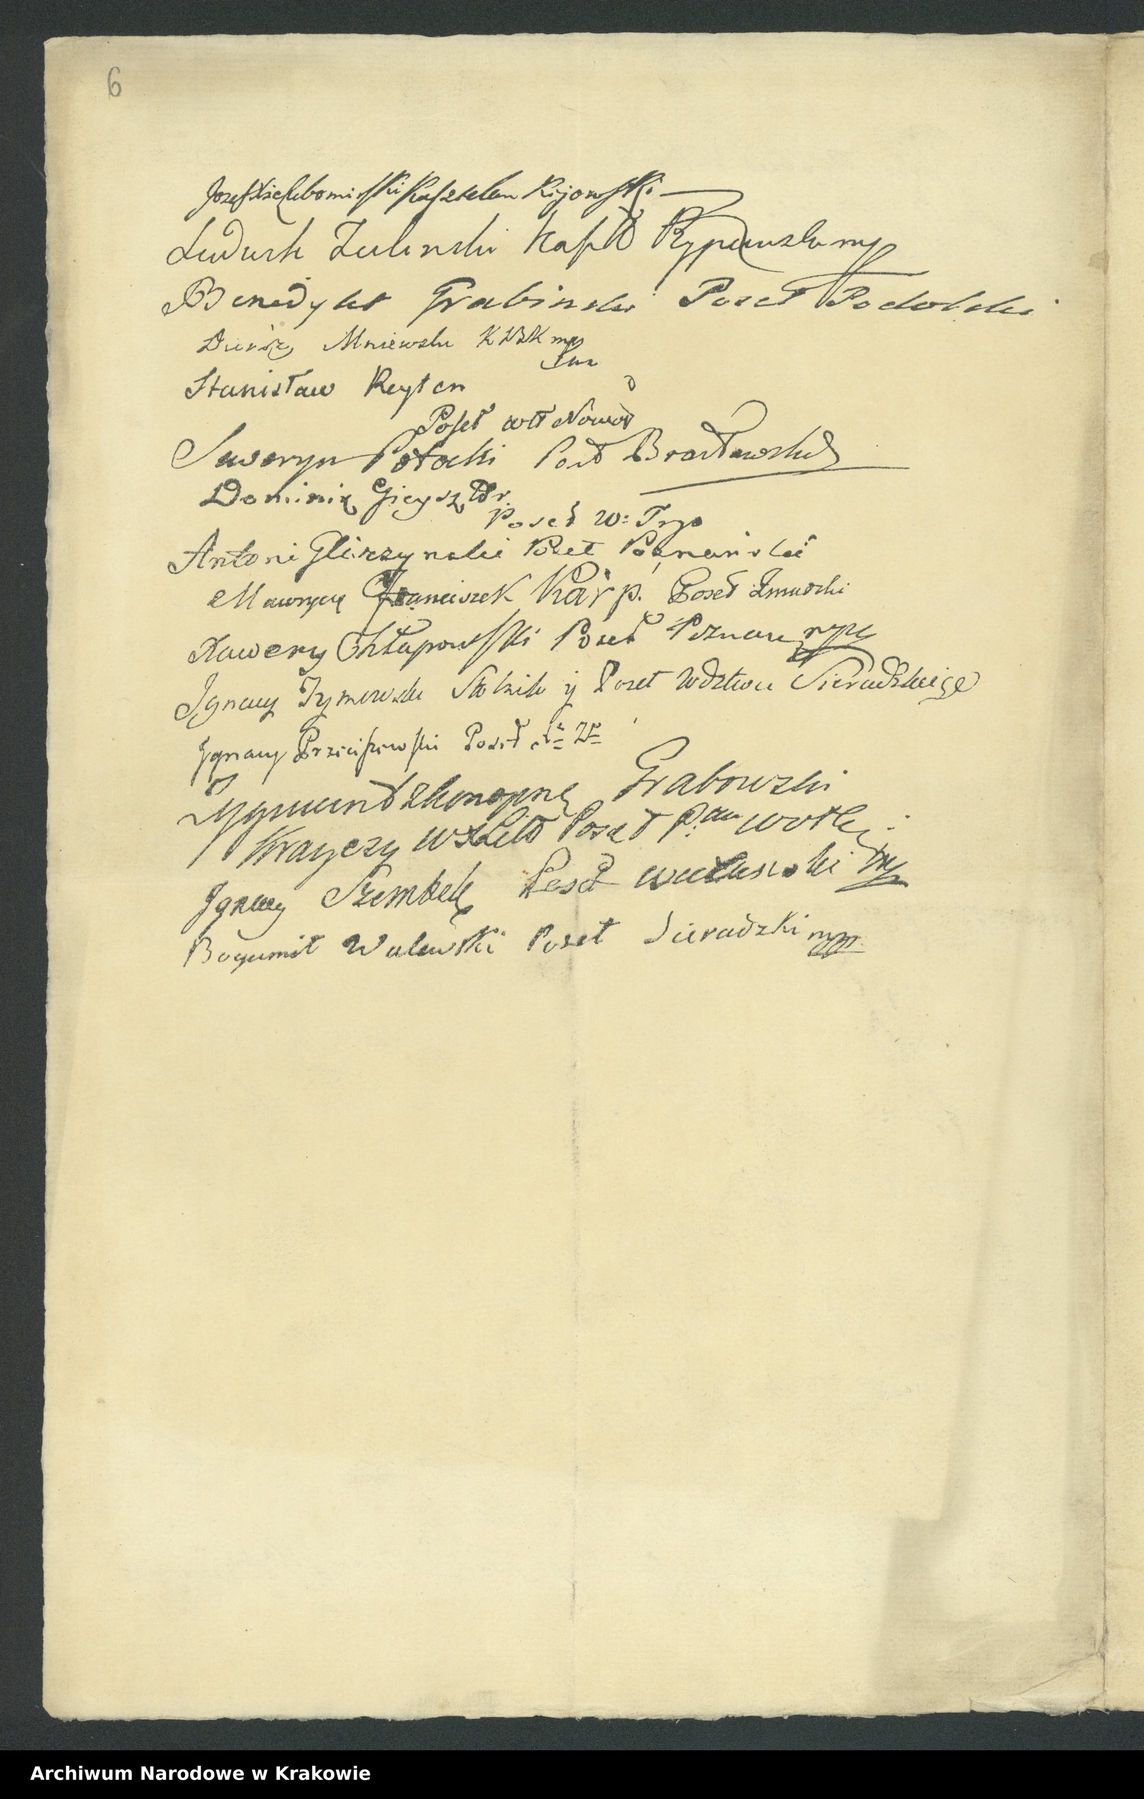 6
Jozef Xże Lubomirski Kasztelan Kijowski
Ludwik Zelinski Kaszt
Benedykt Grabinski Poseł Podolski
Mniewski K mp
Stanisław Reyten
Poseł Nowod
Seweryn Potocki Poseł Bracławski
Dominik Gieysztor
Poseł W: Tr
Antoni Gliszczynski Poseł Poznański
Mawrycy Franciszek Karp. Poseł Zmudzki
Xawery Chłapowski Poseł Poznan mpr
Ignacy Tymowski Stolnik y Poset Wdztwa Sieradzkiego
Ignacy Przeciszewski Poseł
Zygmunt z Konopnę Grabowski
Krayczy Poseł P. Wołk:
Ignacy Szembek Poseł mp
Bogumił Walewski Poseł Sieradzki mpp.
Archiwum Narodowe w Krakowie